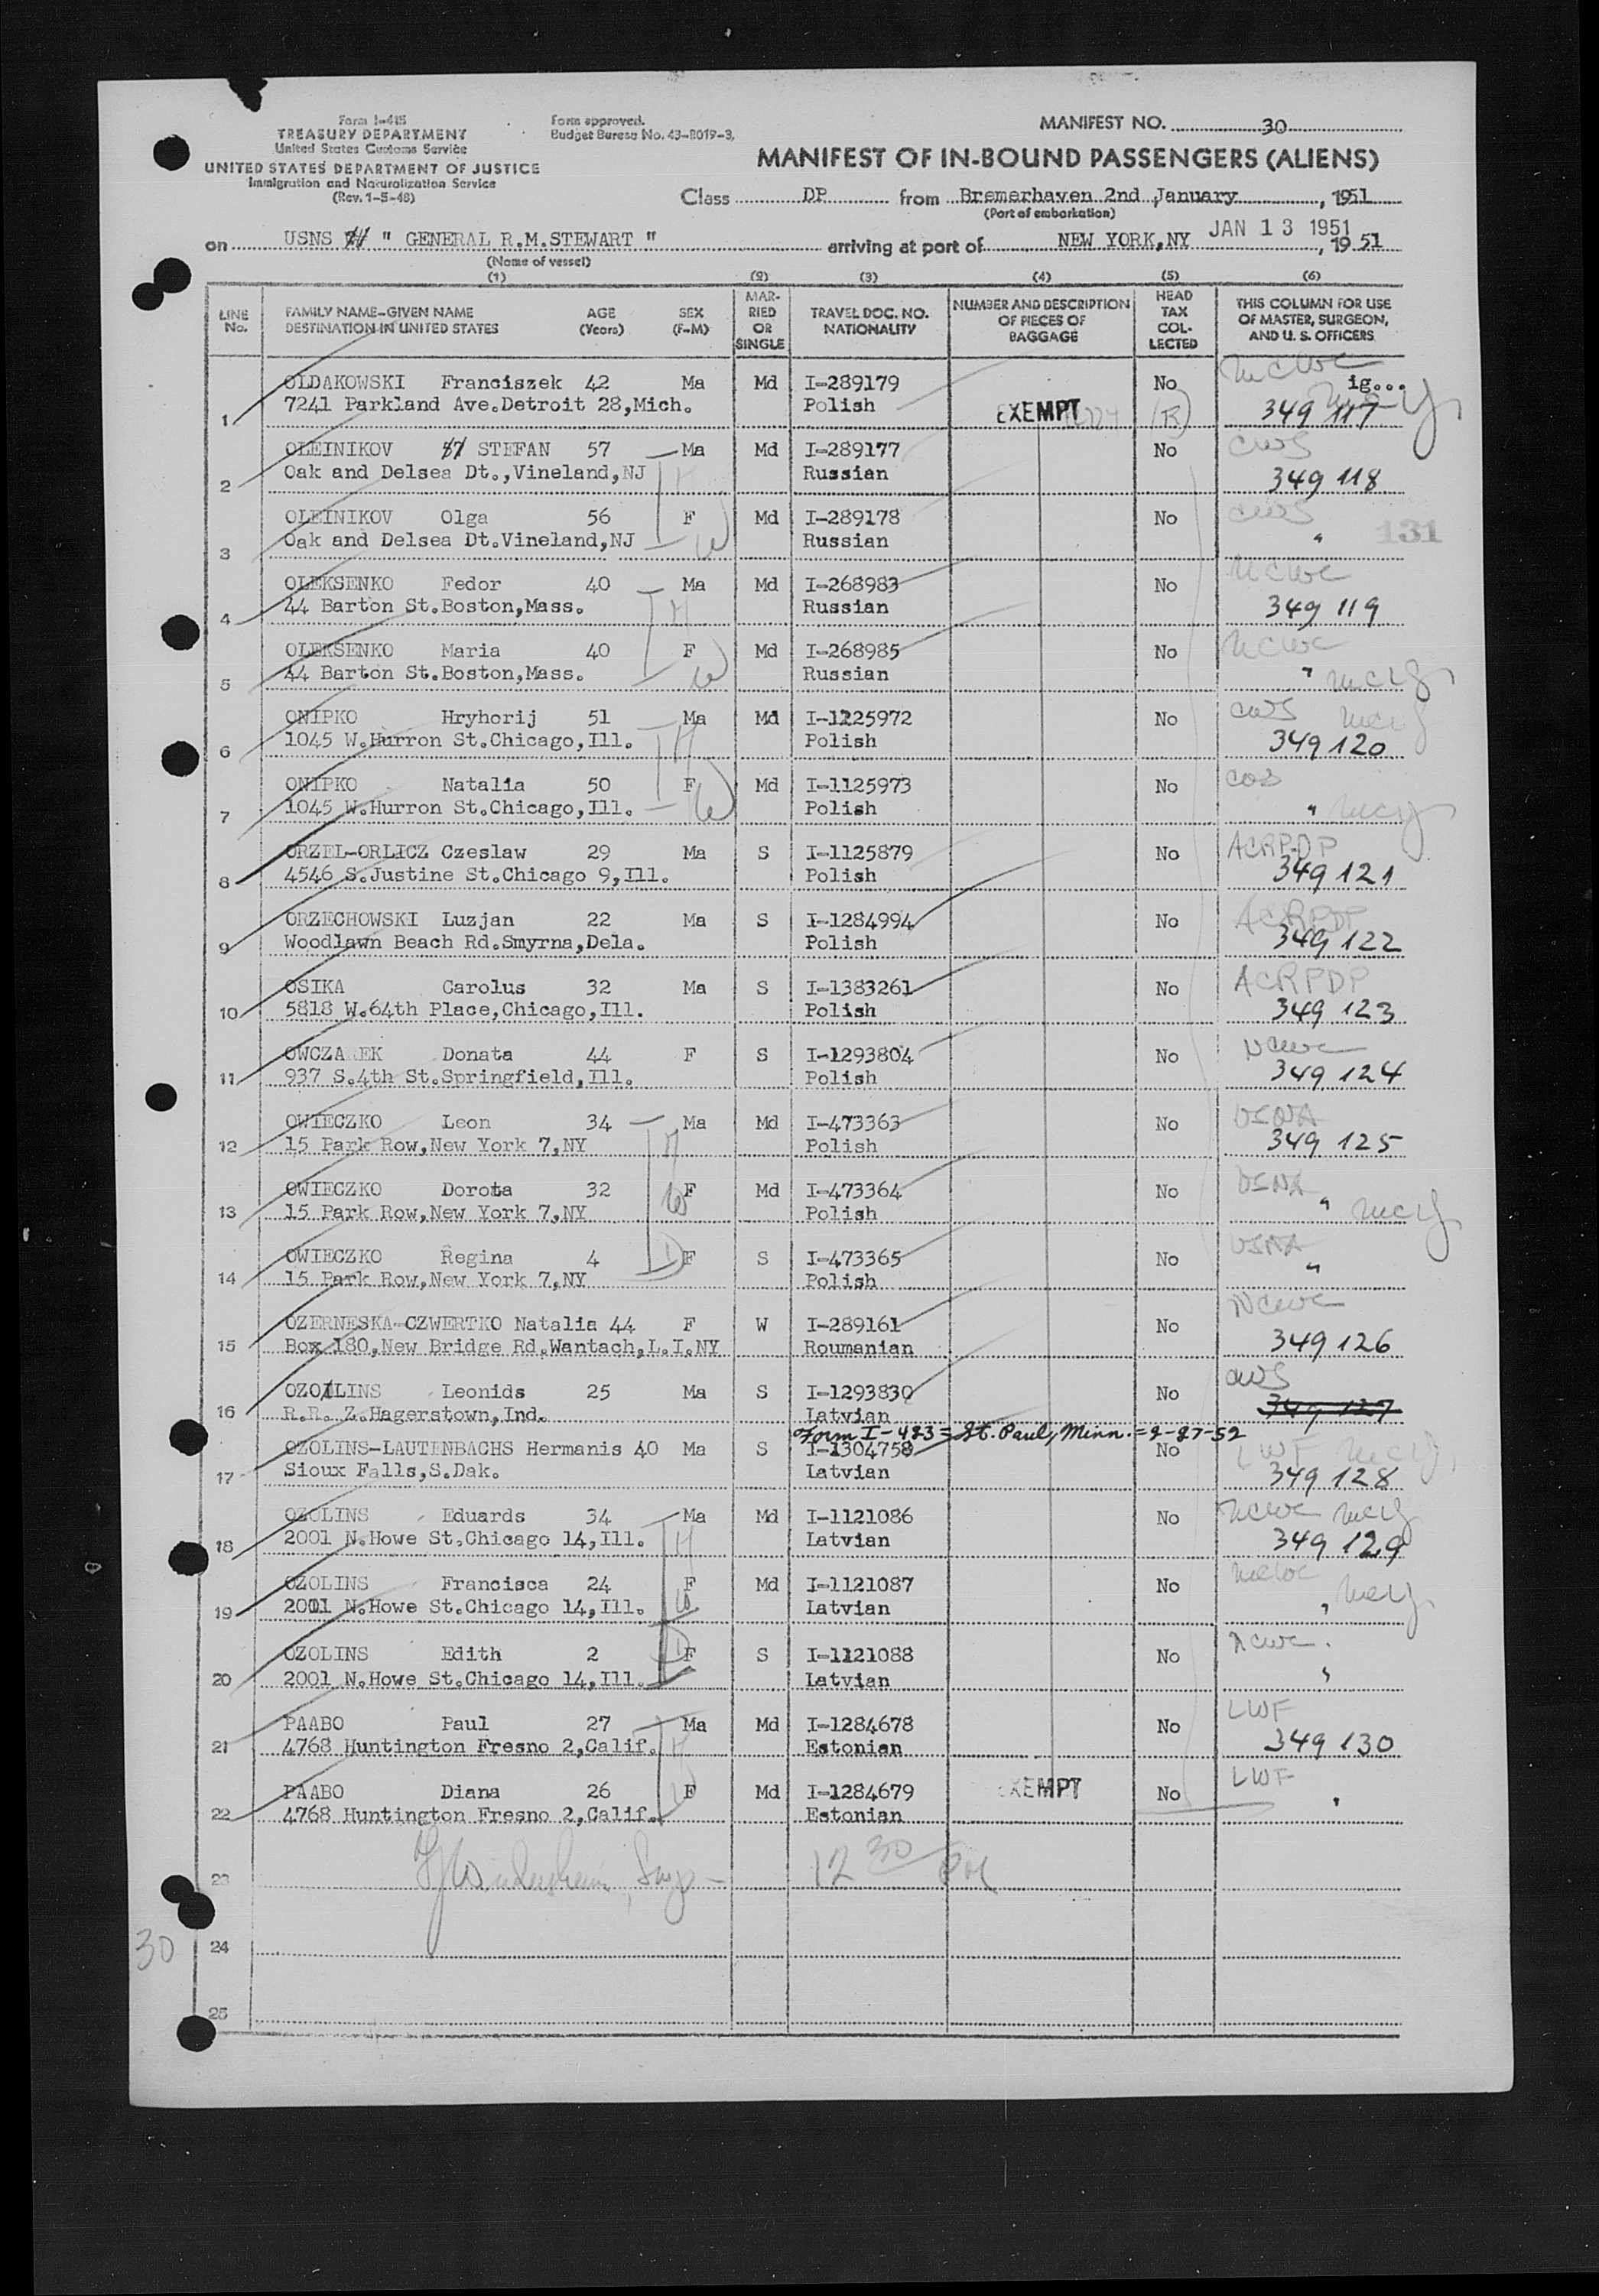 Form I-415
TREASURY DEPARTMENT
United States Customs Service
UNITED STATES DEPARTMENT OF JUSTICE
Immigration and Naturalization Service
(Rev. 1-5-48)
Form approved.
Budget Bureau No. 43-R019-3.
MANIFEST NO. 30
MANIFEST OF IN-BOUND PASSENGERS (ALIENS)
Class DP from Bremerhaven 2nd January, 1951
(Port of embarkation)
on USNS " GENERAL R.M.STEWART " arriving at port of NEW YORK,NY JAN 13 1951, 1951
(Name of vessel)
(1) (2) (3) (4) (5) (6)
LINE No. FAMILY NAME-GIVEN NAME DESTINATION IN UNITED STATES AGE (Years) SEX (F-M) MARRIED OR SINGLE TRAVEL DOC. NO. NATIONALITY NUMBER AND DESCRIPTION OF PIECES OF BAGGAGE HEAD TAX COLLECTED THIS COLUMN FOR USE OF MASTER, SURGEON, AND U. S. OFFICERS
OLDAKOWSKI Franciszek 42 Ma Md I-289179 No ncwc ig...
1 7241 Parkland Ave.Detroit 28,Mich. Polish EXEMPT 349 117
OLEINIKOV STEFAN 57 Ma Md I-289177 No CWS
2 Oak and Delsea Dt.,Vineland,NJ Russian 349 118
OLEINIKOV Olga 56 F Md I-289178 No CWS
3 Oak and Delsea Dt.Vineland,NJ Russian " 131
OLEKSENKO Fedor 40 Ma Md I-268983 No ncwc
4 44 Barton St.Boston,Mass. Russian 349 119
OLEKSENKO Maria 40 F Md I-268985 No ncwc
5 44 Barton St.Boston,Mass. Russian "
ONIPKO Hryhorij 51 Ma Md I-1225972 No CWS
6 1045 W.Hurron St.Chicago,Ill. Polish 349 120
ONIPKO Natalia 50 F Md I-1125973 No
7 1045 W.Hurron St.Chicago,Ill. Polish "
ORZEL-ORLICZ Czeslaw 29 Ma S I-1125879 No ACRPDP
8 4546 S.Justine St.Chicago 9,Ill. Polish 349 121
ORZECHOWSKI Luzjan 22 Ma S I-1284994 No ACRPDP
9 Woodlawn Beach Rd.Smyrna,Dela. Polish 349 122
OSIKA Carolus 32 Ma S I-1383261 No ACRPDP
10 5818 W.64th Place,Chicago,Ill. Polish 349 123
OWCZAREK Donata 44 F S I-1293804 No Ncwc
11 937 S.4th St.Springfield,Ill. Polish 349 124
OWIECZKO Leon 34 Ma Md I-473363 No USNA
12 15 Park Row,New York 7,NY Polish 349 125
OWIECZKO Dorota 32 F Md I-473364 No USNA
13 15 Park Row,New York 7,NY Polish "
OWIECZKO Regina 4 F S I-473365 No USNA
14 15 Park Row,New York 7,NY Polish "
OZERNESKA-CZWERTKO Natalia 44 F W I-289161 No Ncwc
15 Box 180,New Bridge Rd.Wantach,L.I.NY Roumanian 349 126
OZOLINS Leonids 25 Ma S I-1293830 No CWS
16 R.R. Z.Hagerstown,Ind. Latvian 349 127
Form I-423 = St. Paul, Minn. = 2-27-52
OZOLINS-LAUTENBACHS Hermanis 40 Ma S I-1304758 No LWF
17 Sioux Falls,S.Dak. Latvian 349 128
OZOLINS Eduards 34 Ma Md I-1121086 No ncwc
18 2001 N.Howe St.Chicago 14,Ill. Latvian 349 129
OZOLINS Francisca 24 F Md I-1121087 No ncwc
19 2001 N.Howe St.Chicago 14,Ill. Latvian "
OZOLINS Edith 2 F S I-1121088 No ncwc
20 2001 N.Howe St.Chicago 14,Ill. Latvian "
PAABO Paul 27 Ma Md I-1284678 No LWF
21 4768 Huntington Fresno 2,Calif. Estonian 349 130
PAABO Diana 26 F Md I-1284679 EXEMPT No LWF
22 4768 Huntington Fresno 2,Calif. Estonian "
23 12 30 PM
30 24
25